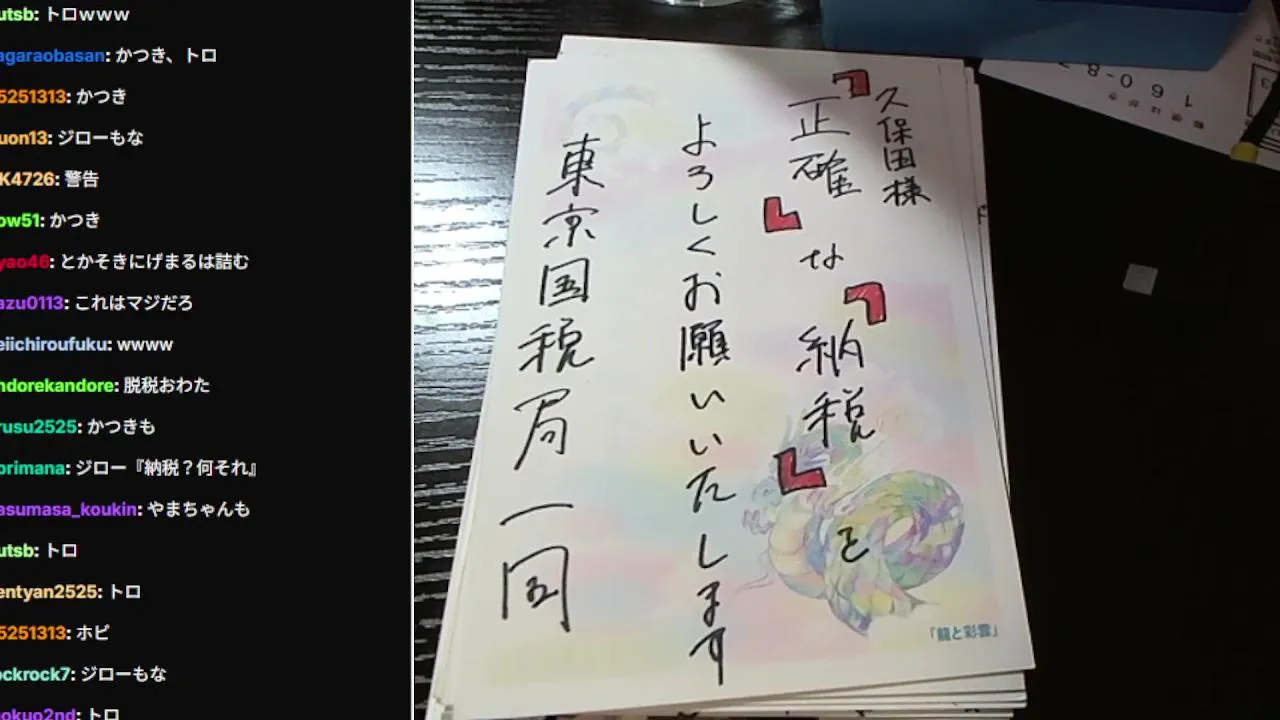 utsb: トロwww
agaraobasan: かつき、トロ
5251313: かつき
uon13: ジローもな
K4726: 警告
ow51: かつき
yao46: とかそきにげまるは詰む
azu0113: これはマジだろ
eiichiroufuku: wwww
ndorekandore: 脱税おわた
rusu2525: かつきも
orimana: ジロー『納税？何それ』
asumasa_koukin: やまちゃんも
utsb: トロ
entyan2525: トロ
5251313: ホピ
ockrock7: ジローもな
gokuo2nd: トロ
久保田様
「正確」な「納税」を
よろしくお願いいたします
東京国税局一同
「龍と彩雲」